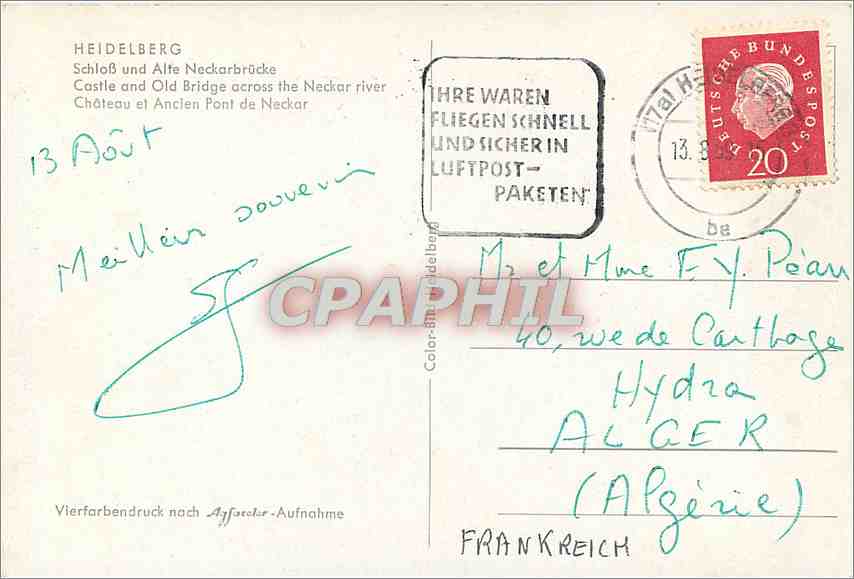 HEIDELBERG
Schloß und Alte Neckarbrücke
Castle and Old Bridge across the Neckar river
Château et Ancien Pont de Neckar
13 Août
Meilleur souvenir
IHRE WAREN
FLIEGEN SCHNELL
UND SICHER IN
LUFTPOST-
PAKETEN
(17a)
13. 8.
be
DEUTSCHE BUNDESPOST
20
Mr et Mme F Y. Péan
40, rue de Carthage
Hydra
ALGER
(Algérie)
FRANKREICH
CPAPHIL
Color-Bild Heidelberg
Vierfarbendruck nach Agfacolor-Aufnahme